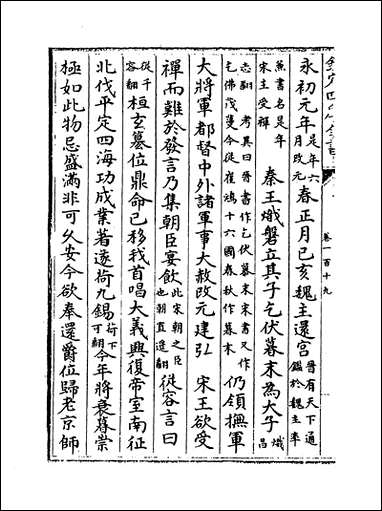 卷一百十九
永初元年是年六月改元春正月己亥魏主還宮晉有天下通鑑於魏主率
無書名是年宋主受禪 秦王熾磐立其子乞伏暮末為太子熾昌
志翻 考異曰晉書作乞伏慕末宋書又作乞佛茂蔓今從崔鴻十六國春秋作暮末 仍領撫軍
大將軍都督中外諸軍事大赦改元建弘 宋王欲受
禪而難於發言乃集朝臣宴飲此宋朝之臣也朝直遥翻從容言曰
從千容翻桓玄篡位鼎命已移我首唱大義興復帝室南征
北伐平定四海功成業著遂荷九錫荷下可翻今年將衰暮崇
極如此物忌盛滿非可久安今欲奉還爵位歸老京師